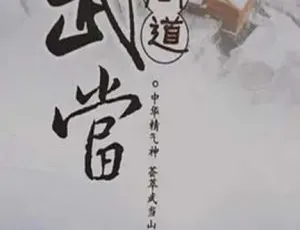 道
武當
中华精气神 荟萃武当山